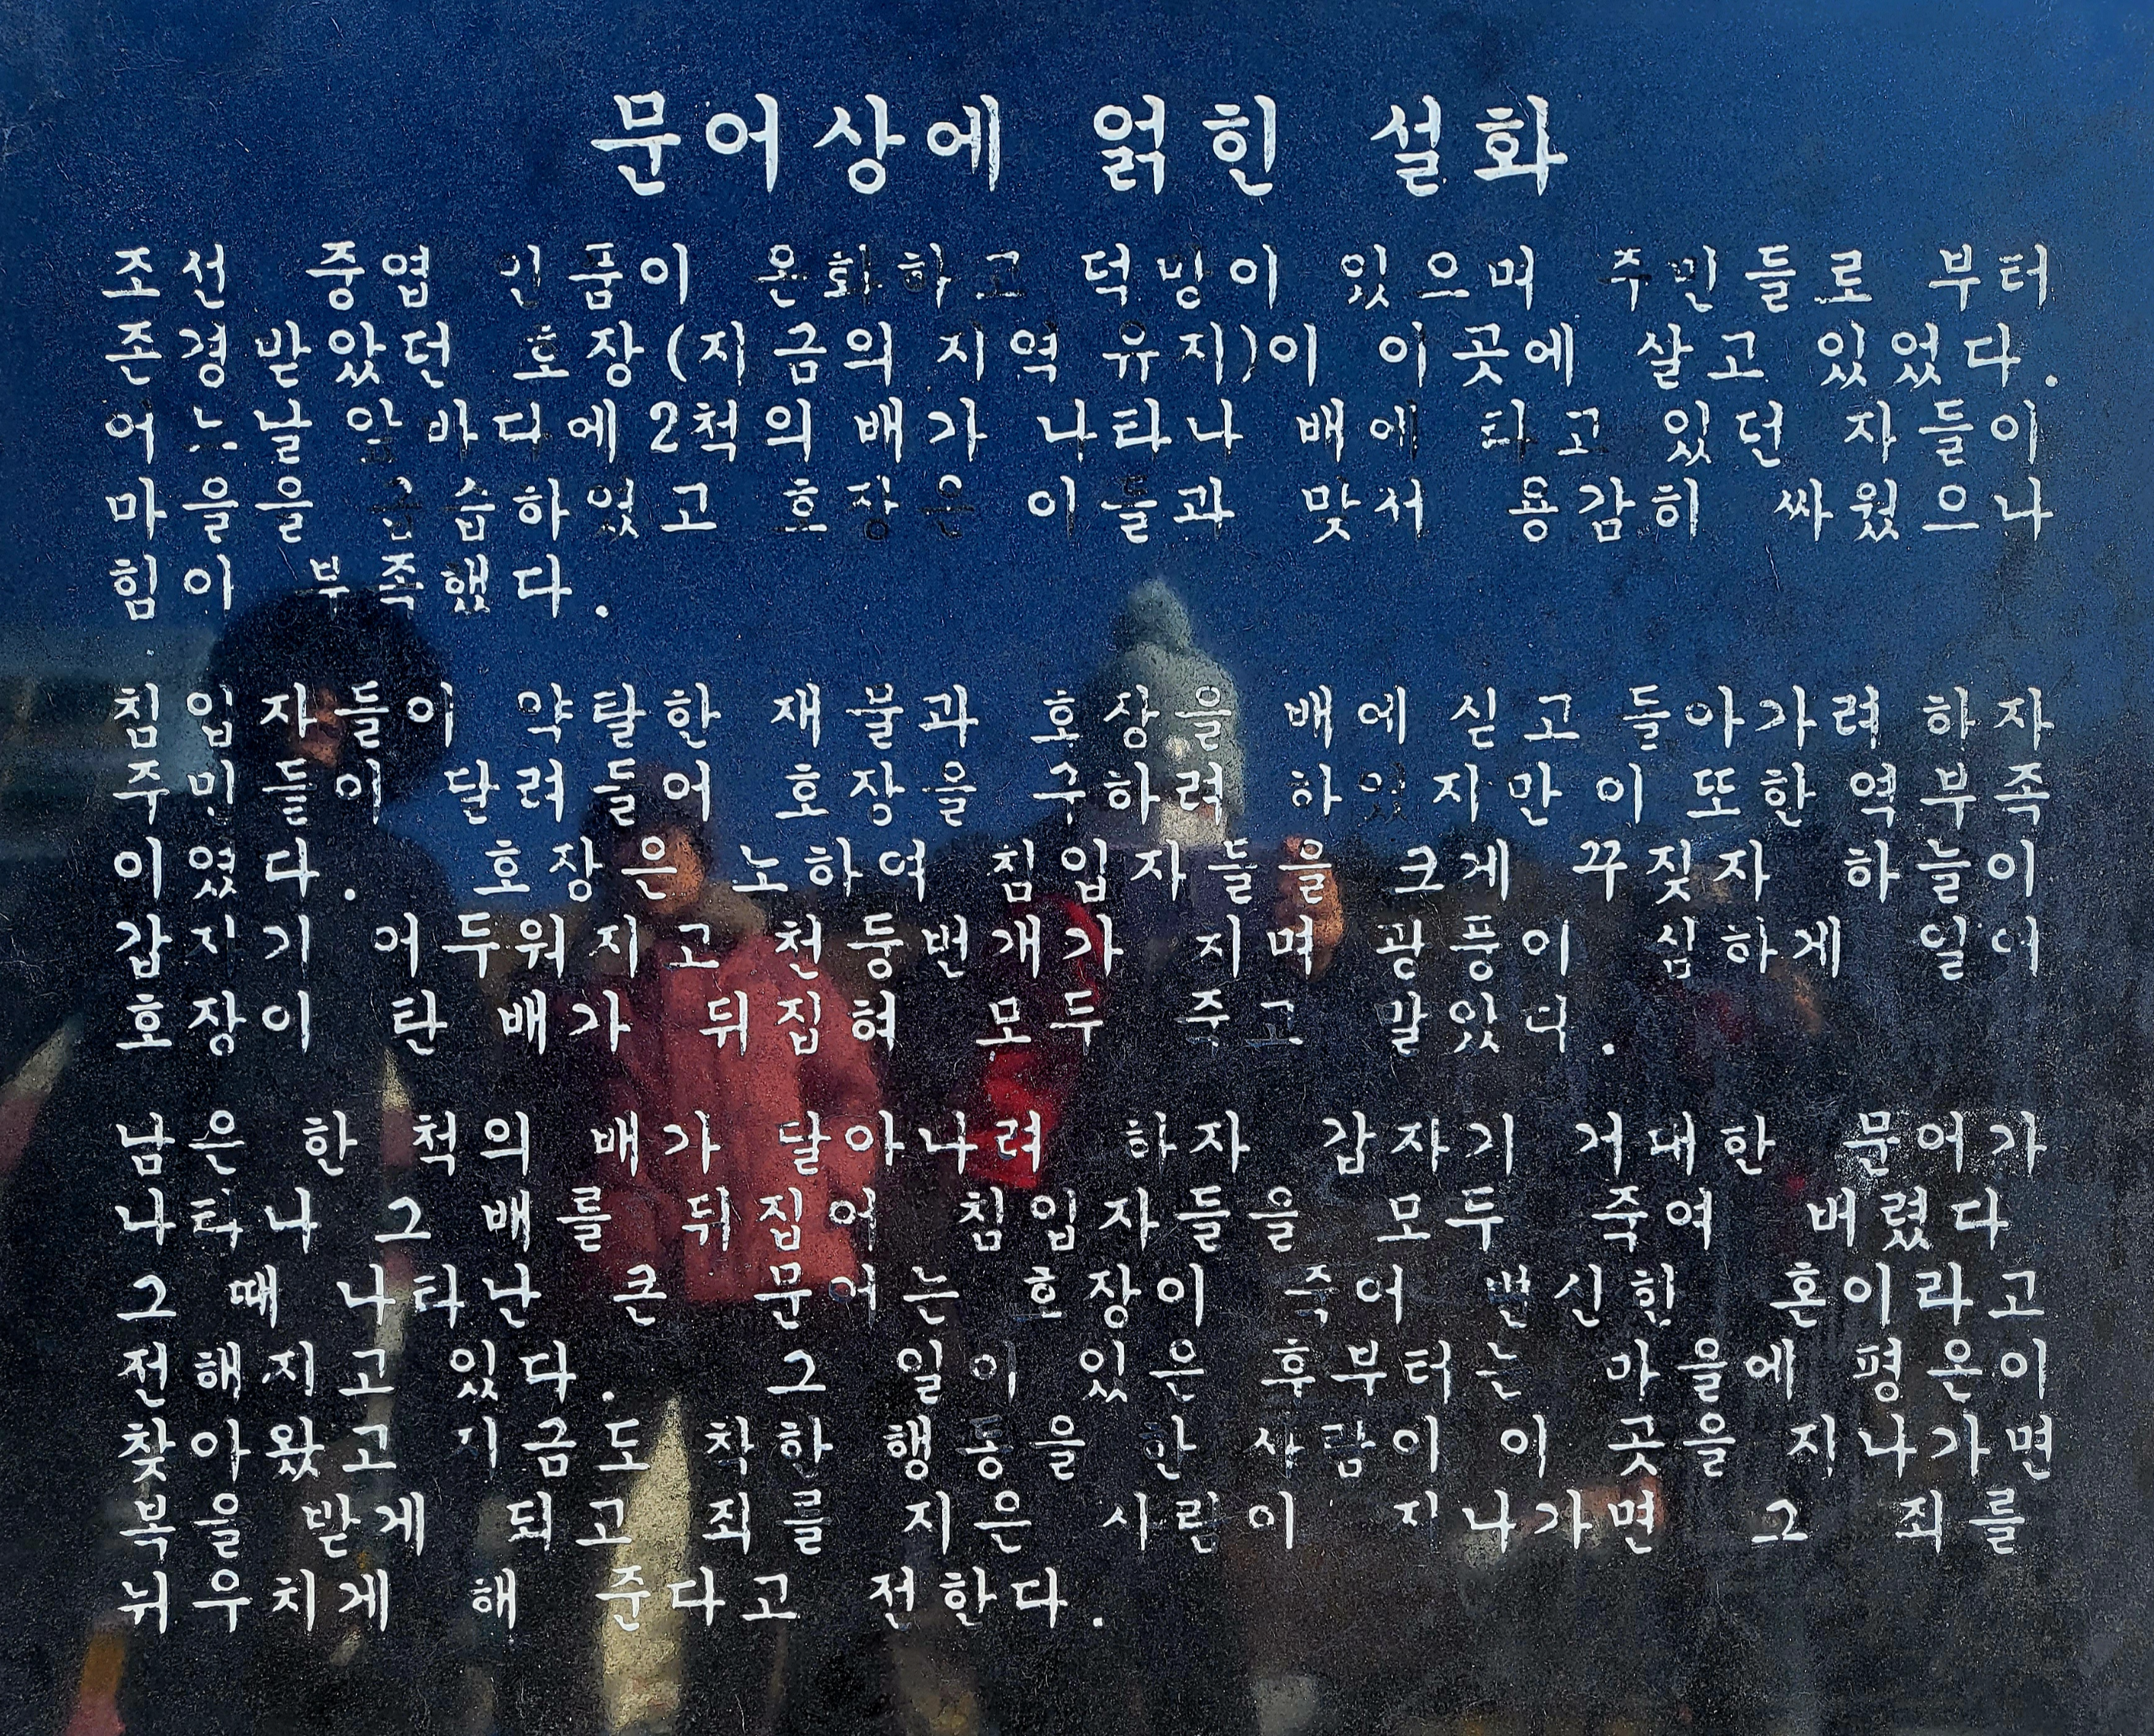 문어상에 얽힌 설화
조선 중엽 인품이 온화하고 덕망이 있으며 주민들로 부터
존경받았던 호장(지금의 지역 유지)이 이곳에 살고 있었다.
어느날 앞바다에 2척의 배가 나타나 배에 타고 있던 자들이
마을을 급습하였고 호장은 이들과 맞서 용감히 싸웠으나
힘이 부족했다.
침입자들이 약탈한 재물과 호장을 배에 싣고 돌아가려 하자
주민들이 달려들어 호장을 구하려 하였지만 이 또한 역부족
이였다. 호장은 노하여 침입자들을 크게 꾸짖자 하늘이
갑자기 어두워지고 천둥번개가 지며 광풍이 심하게 일어
호장이 탄 배가 뒤집혀 모두 죽고 말았다.
남은 한 척의 배가 달아나려 하자 갑자기 거대한 문어가
나타나 그 배를 뒤집어 침입자들을 모두 죽여 버렸다
그 때 나타난 큰 문어는 호장이 죽어 변신한 혼이라고
전해지고 있다. 그 일이 있은 후부터는 마을에 평온이
찾아왔고 지금도 착한 행동을 한 사람이 이 곳을 지나가면
복을 받게 되고 죄를 지은 사람이 지나가면 그 죄를
뉘우치게 해 준다고 전한다.